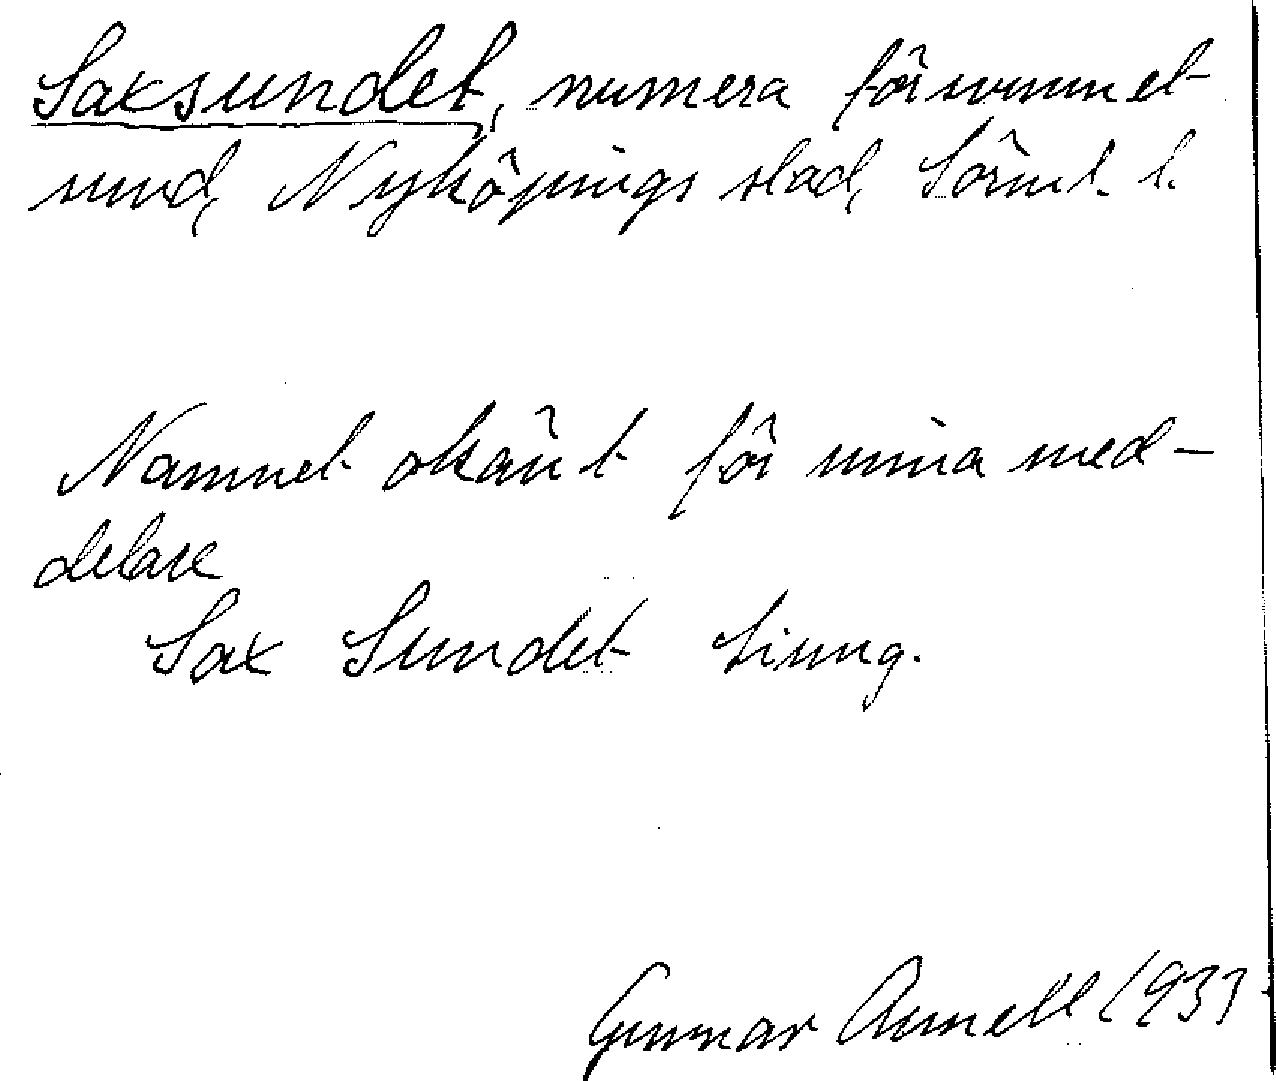 Saxsundet, numera försvunnet
sund, Nyköpings stad, Sörml. l.
Namnet okänt för mina med-
delare
Sax Sundet Ljung.
Gunnar Annell 1933